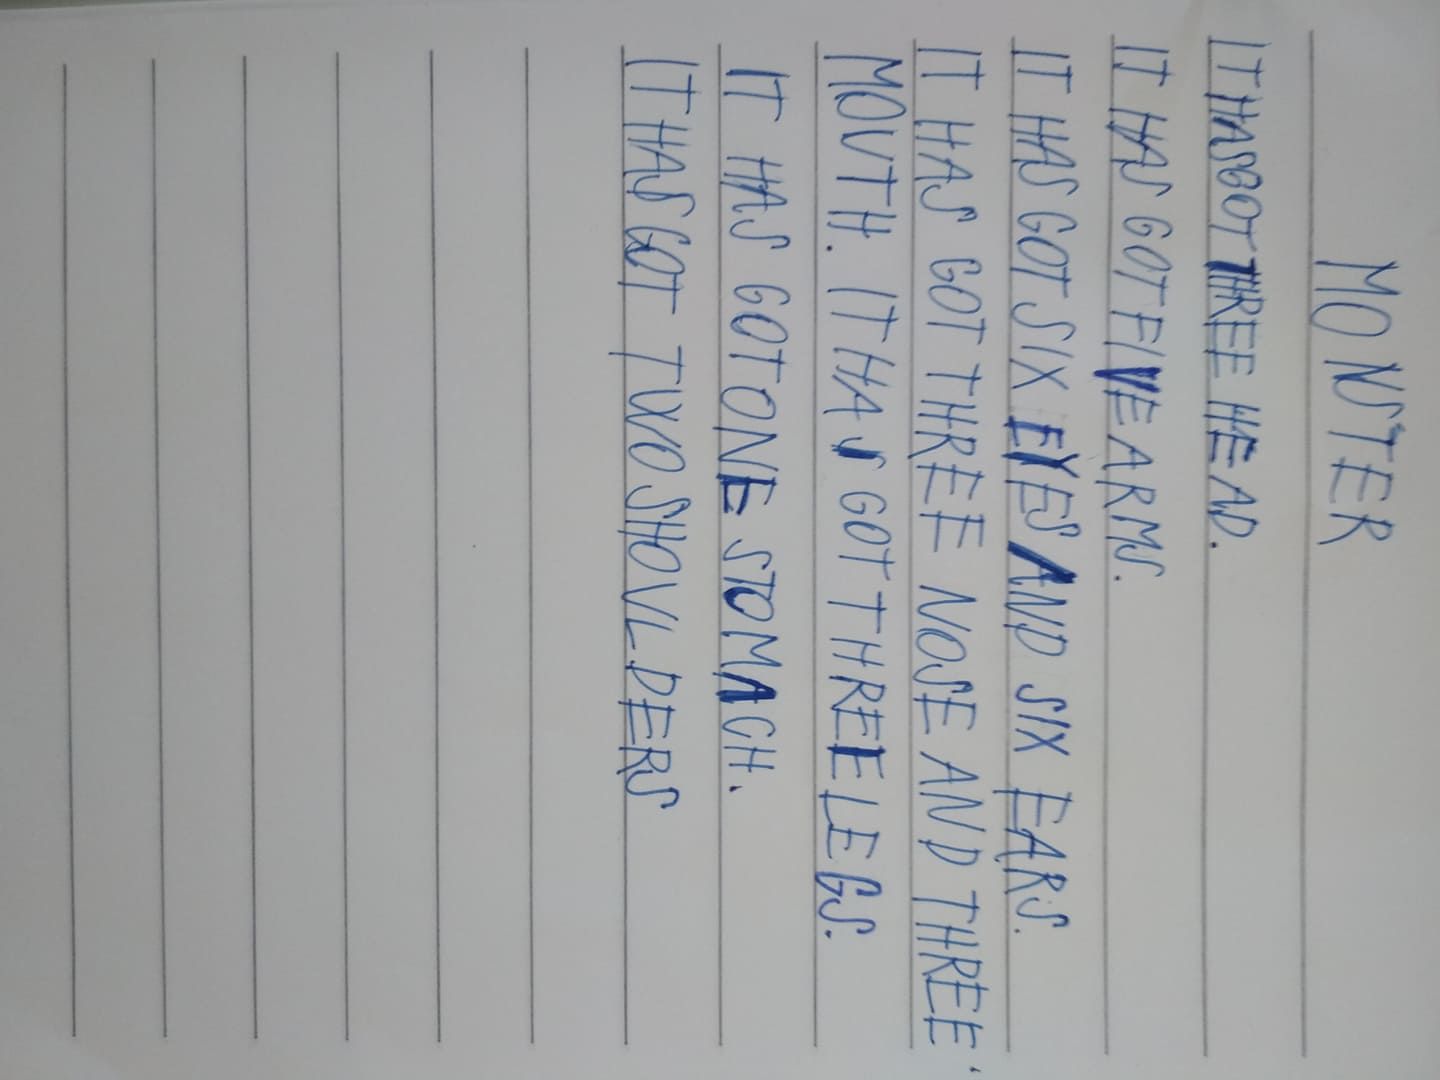 MONSTER
IT HAS GOT THREE HEAD.
IT HAS GOT FIVE ARMS.
IT HAS GOT SIX EYES AND SIX EARS.
IT HAS GOT THREE NOSE AND THREE
MOUTH. IT HAS GOT THREE LEGS.
IT HAS GOT ONE STOMACH.
IT HAS GOT TWO SHOULDERS